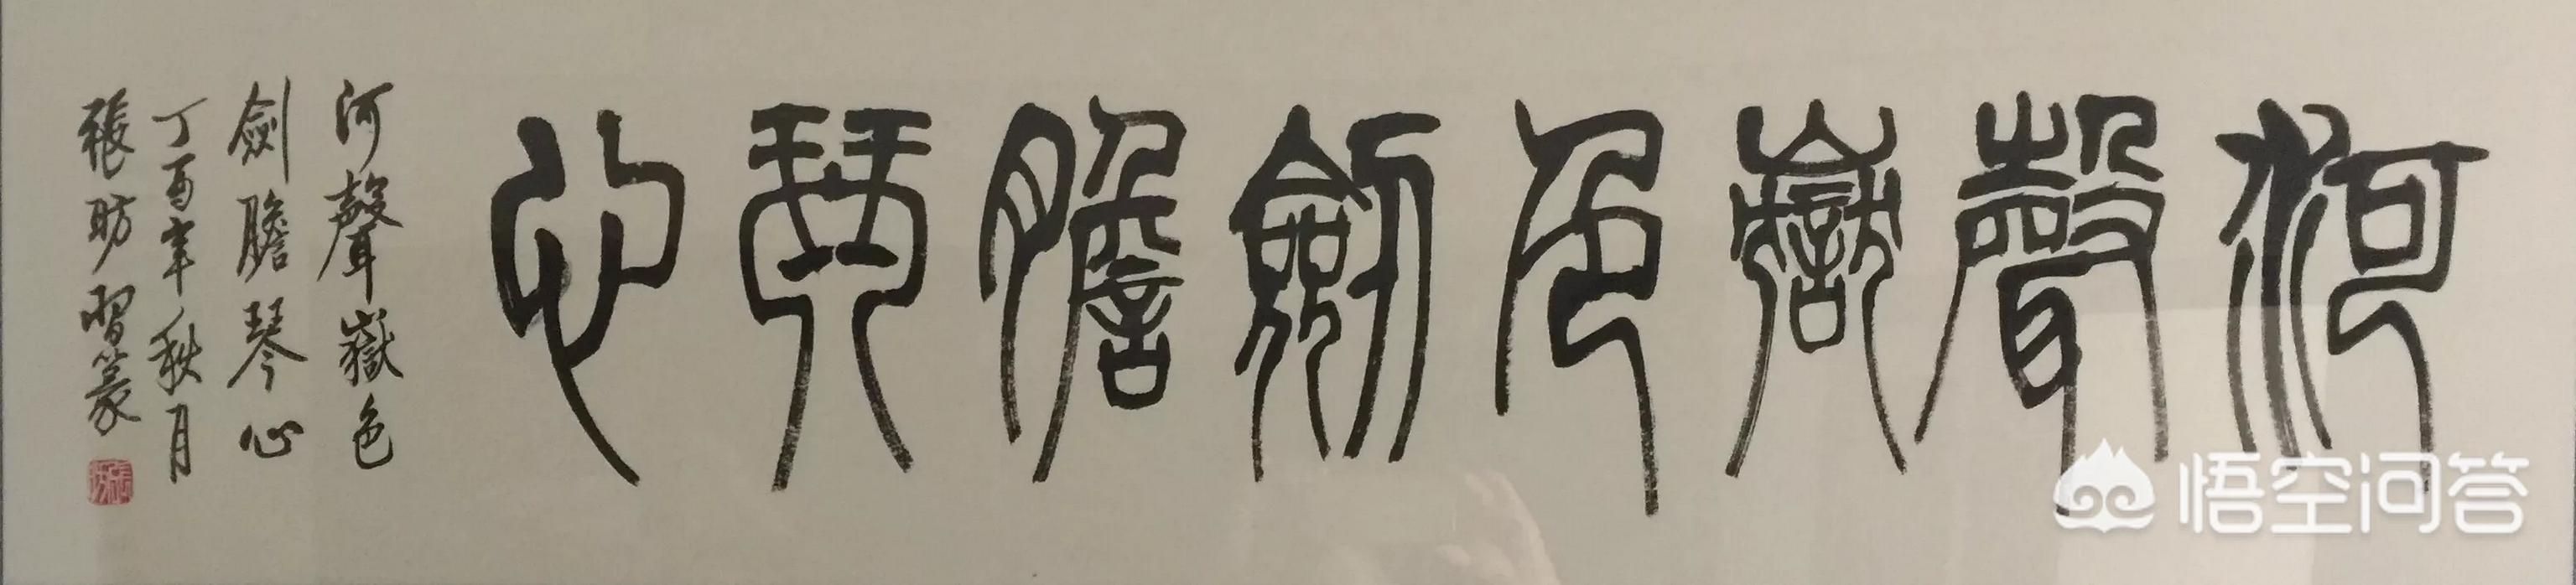 河聲嶽色劍膽琴心
河聲嶽色
劍膽琴心
丁酉年秋月
張昉習篆
張昉
悟空问答